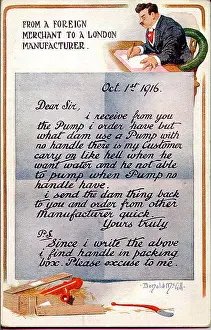 FROM A FOREIGN
MERCHANT TO A LONDON
MANUFACTURER.
Oct. 1st 1916.
Dear Sir,
i receive from you
the Pump i order have but
what dam use a Pump with
no handle there is my Customer
carry on like hell when he
want water and he not able
to pump when Pump no
handle have.
i send the dam thing back
to you and order from other
Manufacturer quick
Yours truly
P.S
Since i write the above
i find handle in packing
box. Please excuse to me.
Donald McGill